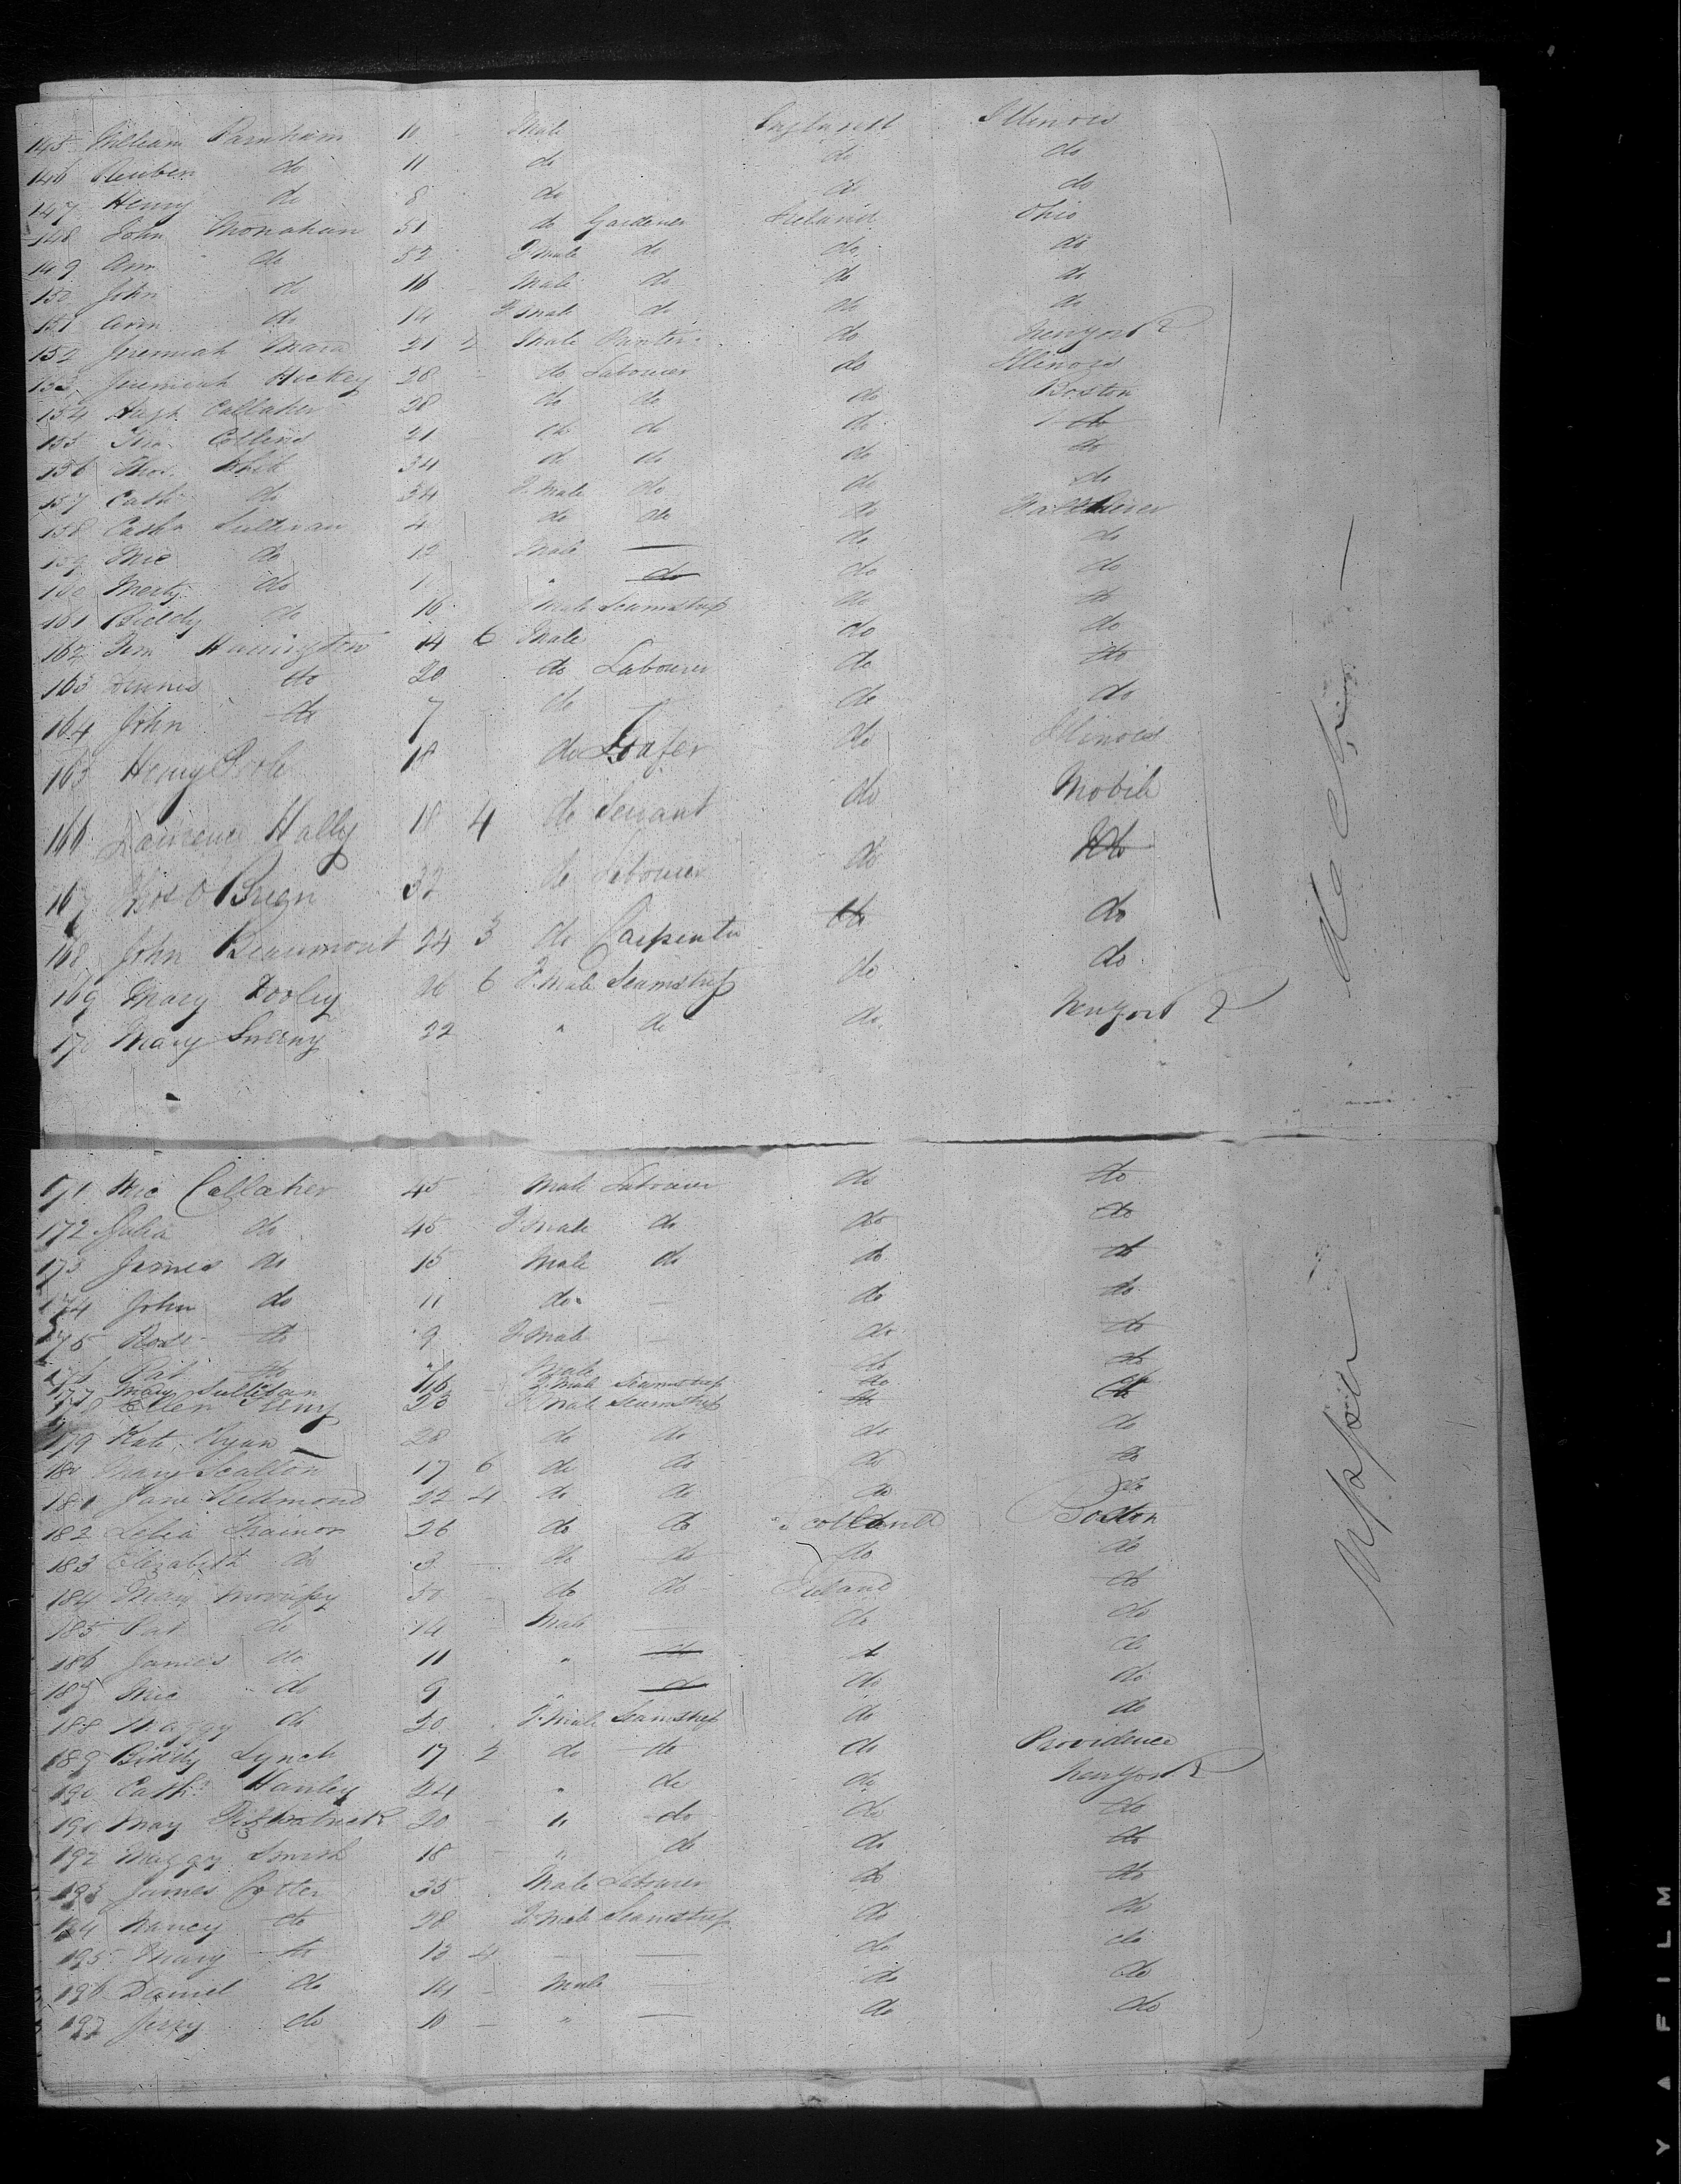 145 William Parnham 10 - Male England Illinois
146 Reuben do 11 do do do
147 Henry do 8 do do do
148 John Monahan 51 do Gardener Ireland Ohio
149 Ann do 52 Fmale do do do
150 John do 16 Male do do do
151 Ann do 14 Fmale do do do
152 Jeremiah Mara 21 2 Male do Newyork
153 Jeremiah Hickey 28 do Labourer do Illinois
154 Hugh Callaher 28 do do do Boston
155 Collins 21 do do do do
156 Thos. 34 do do do do
157 Cath do 34 F.male do do do
158 Cath Sullivan 4 do do do Fall River
159 Mic do 12 Male — do do
160 Merty do do do do
161 Biddy do 16 male Seamstress do do
162 Tim Harrington 14 6 Male do do
163 Dennis do 20 do Labourer do do
164 John do 7 do — do do
165 Henry 18 do Loafer do Illinois
166 Lawrence Hally 18 4 do Servant do Mobile
167 Thos O Brien 32 do Labourer do do
168 John Beaumont 24 3 do Carpenter do do
169 Mary Dooley 26 6 F.male Seamstress do do
170 Mary 22 " do do Newyork
171 Mic Callaher 45 Male Labourer do do
172 Julia do 45 Fmale do do do
173 James do 15 Male do do do
174 John do 11 do — do do
175 Rose do 9 F.male — do do
176 Pat do Male do do
177 Mary Sullivan F.male Seamstress do do
178 Ellen 20 Fmale Seamstress do do
179 Kate Ryan 28 do do do do
180 Mary Scallon 17 6 do do do do
181 Jane Redmond 22 4 do do do do
182 Trainor 26 do do Scotland Boston
183 Elizabeth do 3 do do do do
184 Mary Morrissy 50 do do Ireland do
185 Pat do 14 Male — do do
186 James do 11 " do do do
187 Mic do 9 " do do do
188 Maggy do 20 F.male Seamstress do do
189 Biddy Lynch 17 2 do do do Providence
190 Cath. Hanley 24 " do do Newyork
190 May Fitzpatrick 20 - " do do do
192 Maggy Smith 18 - " do do do
193 James Cotter 35 Male Labourer do do
194 Nancy do 28 F.male Seamstress do do
195 Mary do 13 4 — — do do
196 Daniel do 14 - Male — do do
197 Jerry do 10 - " — do do